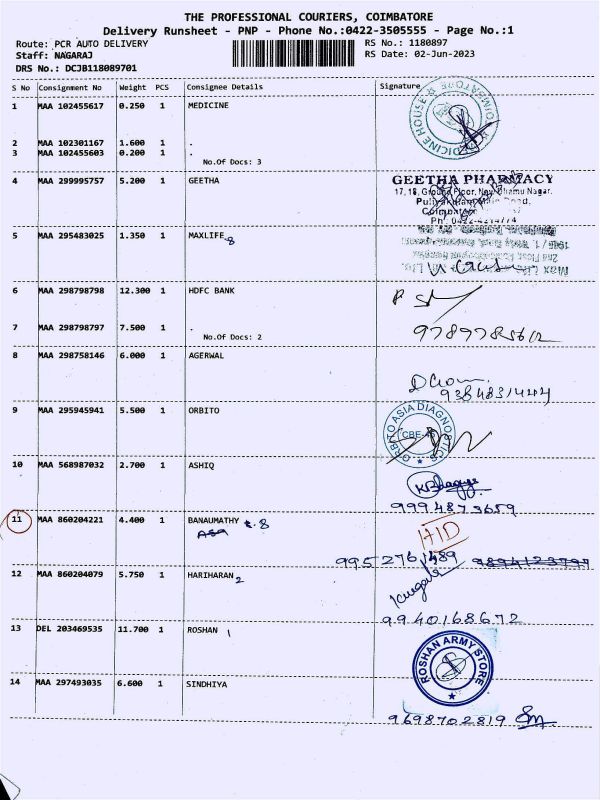 THE PROFESSIONAL COURIERS, COIMBATORE
Delivery Runsheet - PNP - Phone No.:0422-3505555 - Page No.:1
Route: PCR AUTO DELIVERY RS No.: 1180897
Staff: NAGARAJ RS Date: 02-Jun-2023
DRS No.: DCJB118089701
S No Consignment No Weight PCS Consignee Details Signature
1 MAA 102455617 0.250 1 MEDICINE
MEDICINE HOUSE COIMBATORE
2 MAA 102301167 1.600 1 .
3 MAA 102455603 0.200 1 .
No.Of Docs: 3
4 MAA 299995757 5.200 1 GEETHA
GEETHA PHARMACY
17, 18, Ground Floor, New Dhamu Nagar,
Main Road,
Coimbatore
5 MAA 295483025 1.350 1 MAXLIFE 8
Max Life
6 MAA 298798798 12.300 1 HDFC BANK
7 MAA 298798797 7.500 1 .
No.Of Docs: 2
8 MAA 298758146 6.000 1 AGERWAL
9384831444
9 MAA 295945941 5.500 1 ORBITO
ORBITO ASIA DIAGNOSTICS
CBE
10 MAA 568987032 2.700 1 ASHIQ
9994873659
11 MAA 860204221 4.400 1 BANAUMATHY 8
H/D
9952761489
12 MAA 860204079 5.750 1 HARIHARAN 2
9940168672
13 DEL 203469535 11.700 1 ROSHAN 1
ROSHAN ARMY STORE
14 MAA 297493035 6.600 1 SINDHIYA
9698702819